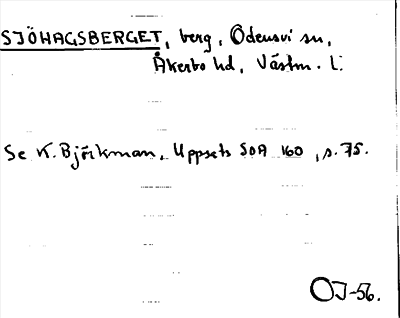 SJÖHAGSBERGET, berg, Odensvi sn,
Åkerbo hd, Västm. l.
Se K. Björkman, Uppsats SOA 160, s. 75.
OJ-56.